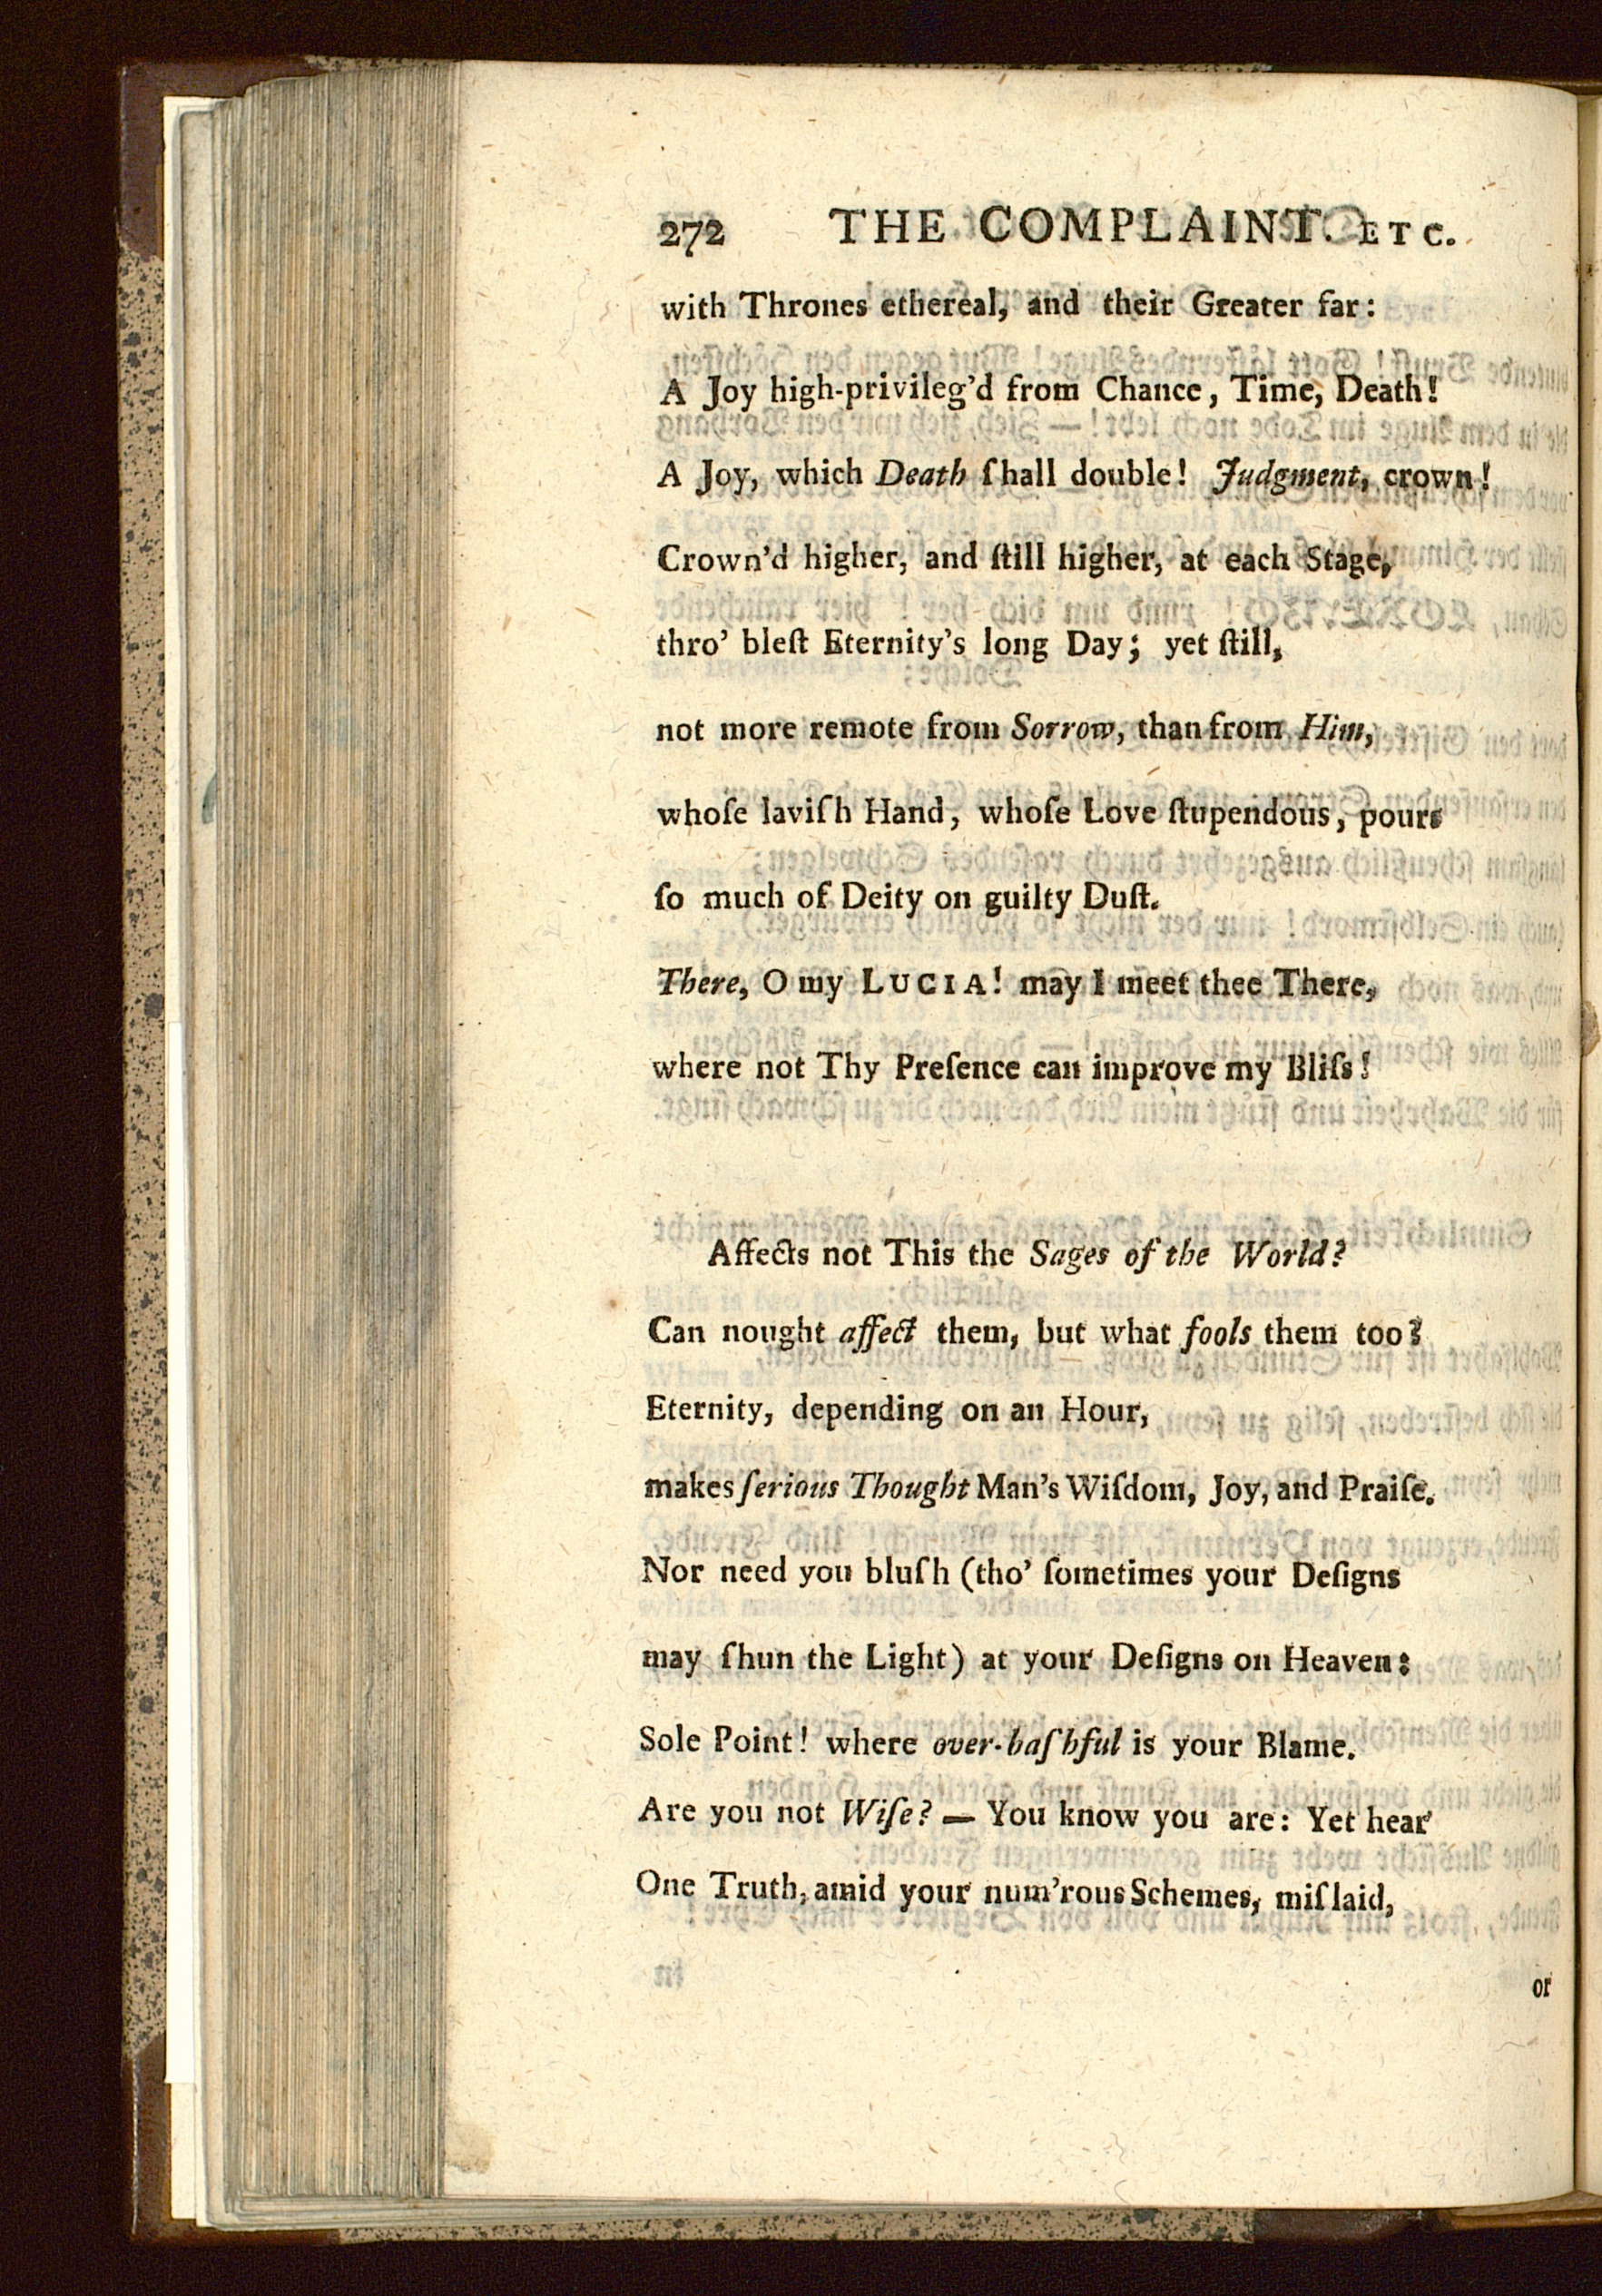 272 THE COMPLAINT. ETC.
with Thrones ethereal, and their Greater far:
A Joy high-privileg'd from Chance, Time, Death!
A Joy, which Death ſhall double! Judgment, crown!
Crown'd higher, and ſtill higher, at each Stage,
thro' bleſt Eternity's long Day; yet ſtill,
not more remote from Sorrow, than from Him,
whoſe laviſh Hand, whoſe Love ſtupendous, pours
ſo much of Deity on guilty Duſt.
There, O my LUCIA! may I meet thee There,
where not Thy Preſence can improve my Bliſs!
Affects not This the Sages of the World?
Can nought affect them, but what fools them too?
Eternity, depending on an Hour,
makes ſerious Thought Man's Wiſdom, Joy, and Praiſe.
Nor need you bluſh (tho' ſometimes your Deſigns
may ſhun the Light) at your Deſigns on Heaven:
Sole Point! where over-baſhful is your Blame.
Are you not Wiſe? — You know you are: Yet hear
One Truth, amid your num'rous Schemes, miſlaid,
or